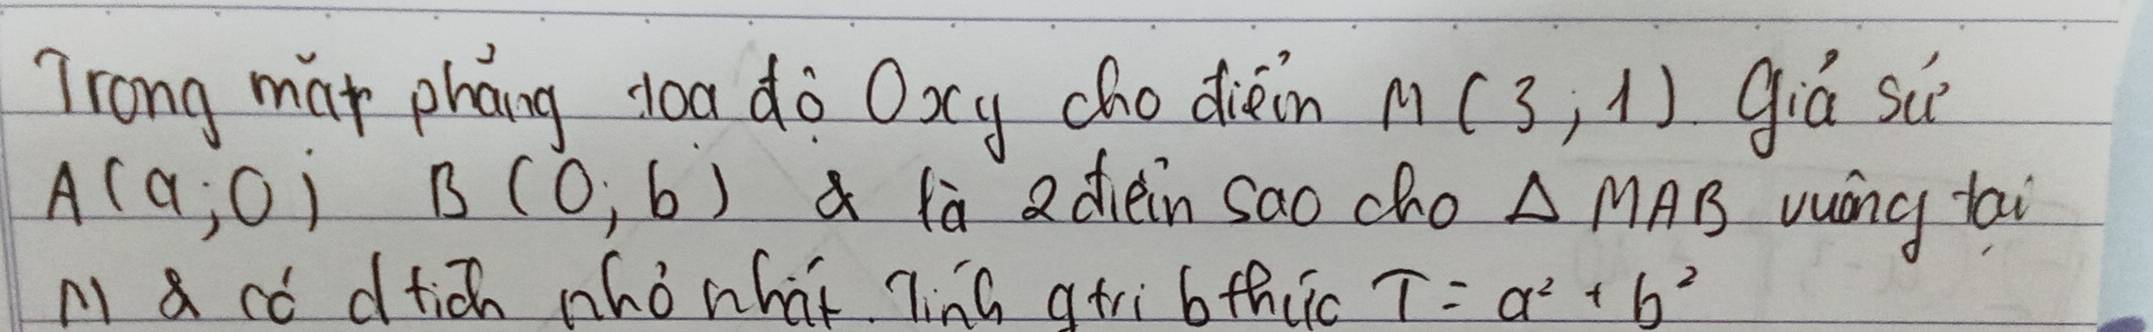 Trong mặt phẳng toạ độ Oxy cho điểm M (3; 1). Giả sử
A(a; 0) B (0; b) & là 2 điểm sao cho Δ MAB vuông tại
M & có d tích nhỏ nhất. Tính gtri b thức T = a² + b²